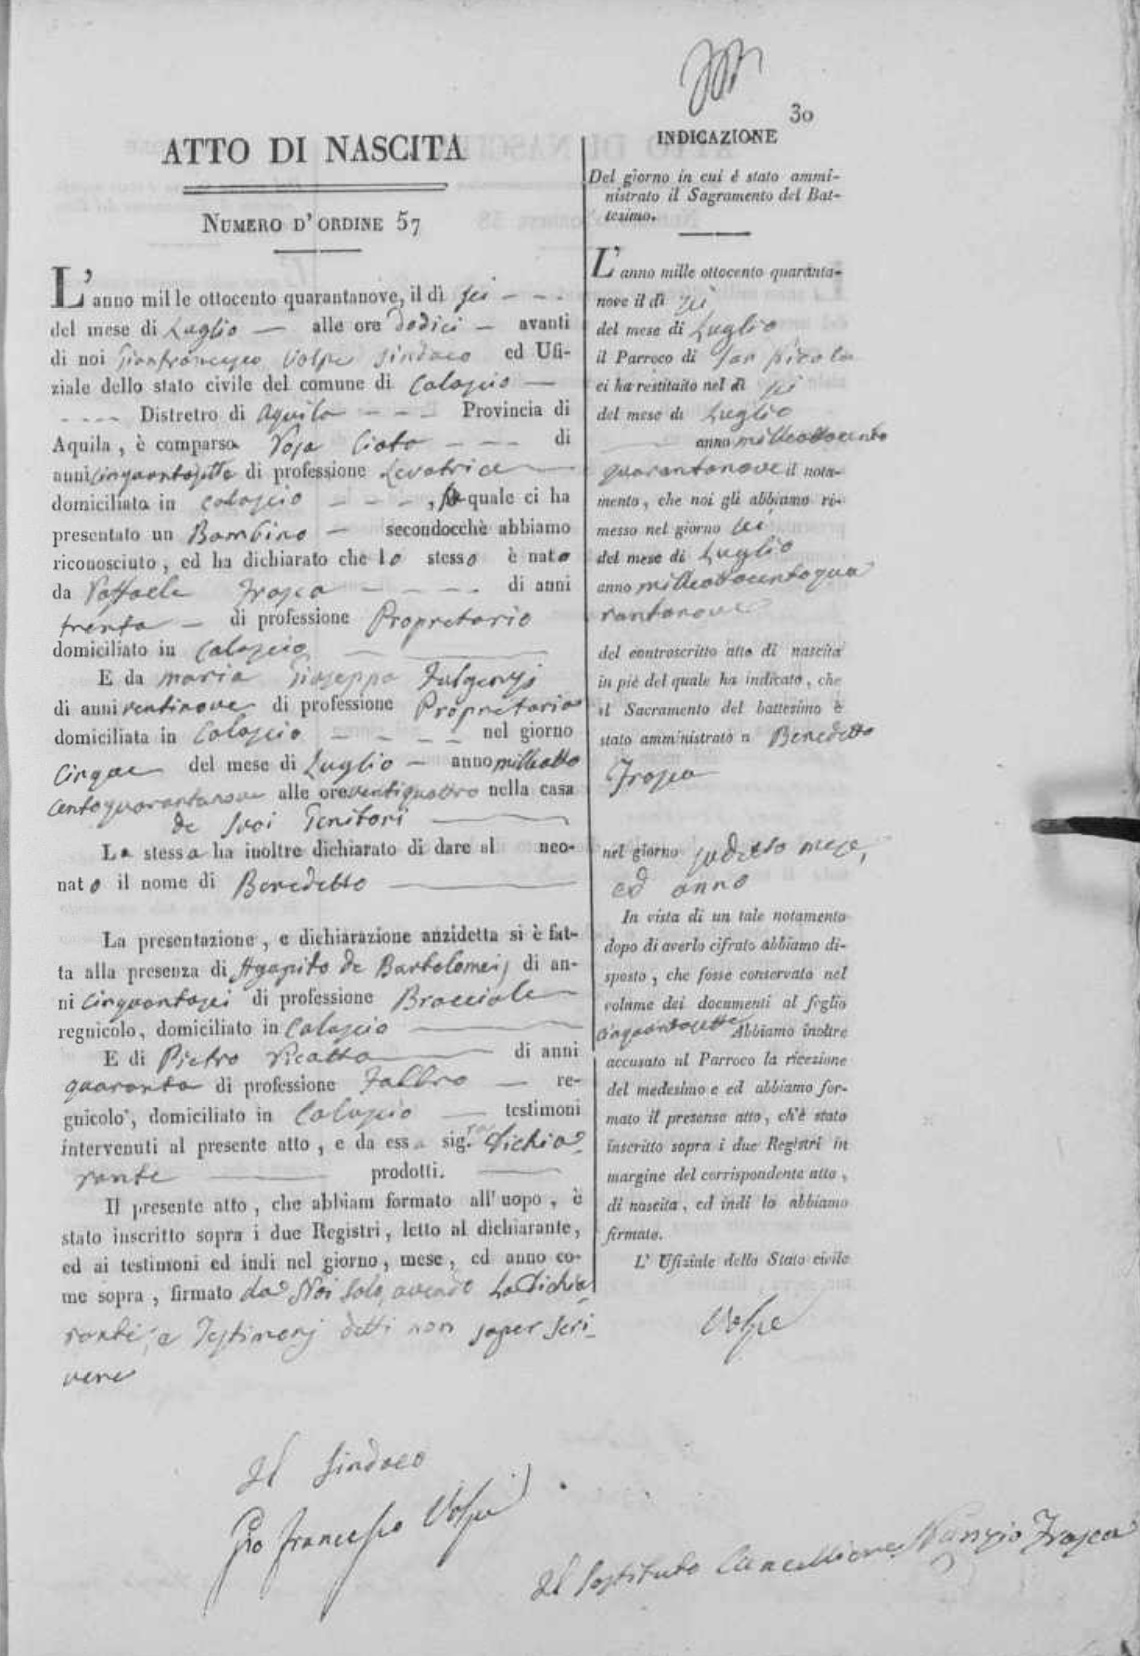 30
ATTO DI NASCITA
NUMERO D' ORDINE 57
L' anno mille ottocento quarantanove, il dì sei
del mese di Luglio — alle ore dodici — avanti
di noi Gianfrancesco Volpe Sindaco ed Ufi-
ziale dello stato civile del comune di Calascio —
Distretro di Aquila Provincia di
Aquila, è comparsa Rosa Ciato di
anni cinquantasette di professione Levatrice
domiciliata in Calascio , la quale ci ha
presentato un Bambino — secondocchè abbiamo
riconosciuto, ed ha dichiarato che lo stesso è nato
da Raffaele Frasca di anni
trenta — di professione Proprietario
domiciliato in Calascio
E da Maria Giuseppa Fulgenzj
di anni ventinove di professione Proprietaria
domiciliata in Calascio nel giorno
Cinque del mese di Luglio — anno milleotto
centoquarantanove alle ore ventiquattro nella casa
de Suoi Genitori
La stessa ha inoltre dichiarato di dare al neo-
nato il nome di Benedetto
La presentazione, e dichiarazione anzidetta si è fat-
ta alla presenza di Agapito de Bartolomeis di an-
ni Cinquantasei di professione Bracciale
regnicolo, domiciliato in Calascio
E di Pietro di anni
quaranta di professione Fabbro — re-
gnicolo, domiciliato in Calascio — testimoni
intervenuti al presente atto, e da essa sig.ra Dichia-
rante prodotti.
Il presente atto, che abbiam formato all' uopo, è
stato inscritto sopra i due Registri, letto al dichiarante,
ed ai testimoni ed indi nel giorno, mese, ed anno co-
me sopra, firmato da Noi Solo, avendo La Dichia
rante, e Testimonj detti non saper Scri-
vere
Il Sindaco
Gio Francesco Volpe
Il Sostituto Cancelliere Nunzio Frasca
INDICAZIONE
Del giorno in cui è stato ammi-
nistrato il Sagramento del Bat-
tesimo.
L' anno mille ottocento quaranta-
nove il dì sei
del mese di Luglio
il Parroco di San Nicola
ci ha restituito nel dì sei
del mese di Luglio
anno milleottocento
quarantanove il nota-
mento, che noi gli abbiamo ri-
messo nel giorno sei
del mese di Luglio
anno milleottocentoqua
rantanove
del controscritto atto di nascita
in piè del quale ha indicato, che
il Sacramento del battesimo è
stato amministrato a Benedetto
Frasca
nel giorno sudetto mese,
ed anno
In vista di un tale notamento
dopo di averlo cifrato abbiamo di-
sposto, che fosse conservato nel
volume dei documenti al foglio
cinquantasette Abbiamo inoltre
accusato al Parroco la ricezione
del medesimo e ed abbiamo for-
mato il presense atto, ch'è stato
inscritto sopra i due Registri in
margine del corrispondente atto,
di nascita, ed indi lo abbiamo
firmato.
L' Ufiziale dello Stato civile
Volpe